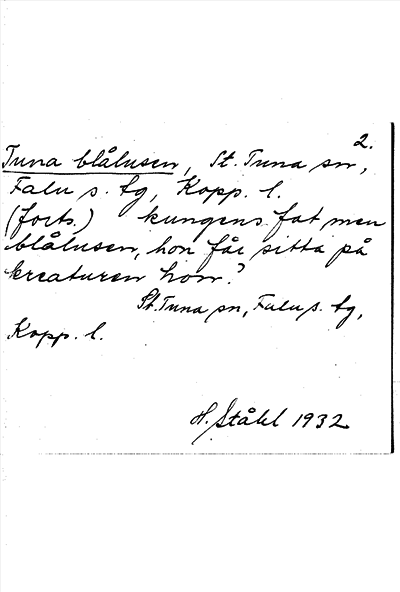 2.
Tuna blålusen, St. Tuna sn,
Falu s. tg, Kopp. l.
(forts.) kungens fat men
blålusen, hon får sitta på
kreaturen hon?
St. Tuna sn, Falu s. tg,
Kopp. l.
H. Ståhl 1932